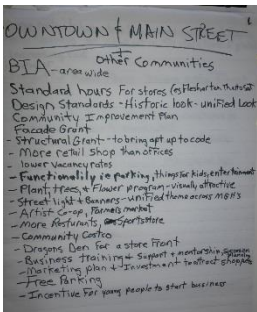 DOWNTOWN & MAIN STREET
+
Other Communities
BIA - area wide
Standard hours For stores
Design Standards - Historic look - unified Look
Community Improvement Plan
Facade Grant
- Structural Grant - to bring apt up to code
- More retail shop than offices
- lower vacancy rates
- Functionality ie parking, things for kids, entertainment
- Plant, trees, + Flower program - visually attractive
- Street light + Banners - unified theme across
- Artist Co-op, Farmers market
- More Resturants, Sports store
- Community Costco
- Dragons Den For a store Front
- Business training + Support + mentorship, Succession planning
- Marketing plan + Investment to attract shoppers
- Free Parking
- Incentive For young people to start business